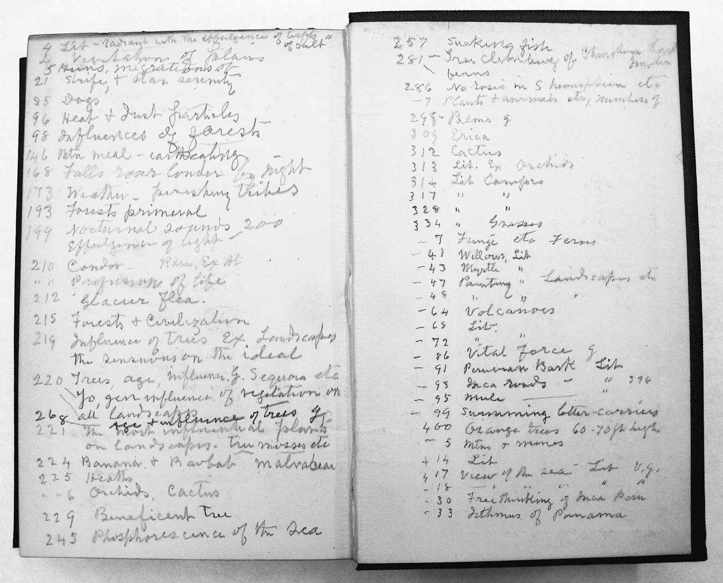 4 Lit - radiant with the effulgence of
of salt"
2 Ventilation of plains
5 Huns, migrations of
21 Strife, & star serenity
85 Dogs
96 Heat & Dust particles
98 Influences of forests
146 Mtn meal - earth eating
168 Falls roar louder by night
173 Weather - perishing tribes
193 Forests primeval
199 Nocturnal sounds 200
Effulgence of light
210 Condor - Ex At
" " Profusion of life
212 Glacier flea.
215 Forests & Civilization
219 Influence of trees Ex. Landscapes
the sensuous on the ideal
220 Trees, age, influence. G. Sequoia etc
Yo, gen influence of vegetation on
all landscape
268 age & influence of trees G
221 The most influential plants
on landscapes. tree mosses etc
224 Banana & Baobab Malvaceae
225 Heaths
" - 6 Orchids, Cactus
229 Beneficent tree
245 Phosphorescence of the Sea
257 Snaking fish
281 Tree climbing of
ferns
286 No rosin in S hemisphere etc
- 7 Plants & animals etc, numbers of
298 - Berns g
309 Erica
312 Cactus
313 Lit. Ex Orchids
314 Lit Conifers
317 " "
328 " "
334 " Grasses
- 7 Fungi etc Ferns
- 41 Willows, Lit
- 43 Myrtle "
- 47 Painting " Landscapes etc
- 48 " " "
- 64 Volcanoes
- 68 Lit.
- 72 " "
- 86 Vital Force G
- 91 Peruvian Bark Lit
- 93 Inca roads - " 394
- 95 Mule
- 99 Swimming letter-carriers
400 Orange trees 60-70 ft high
- 5 Mtn & mines
414 Lit
417 View of the sea - Lit V.G.
- 18 " " "
- 30 Freethinking of Inca Peru
- 33 Isthmus of Panama